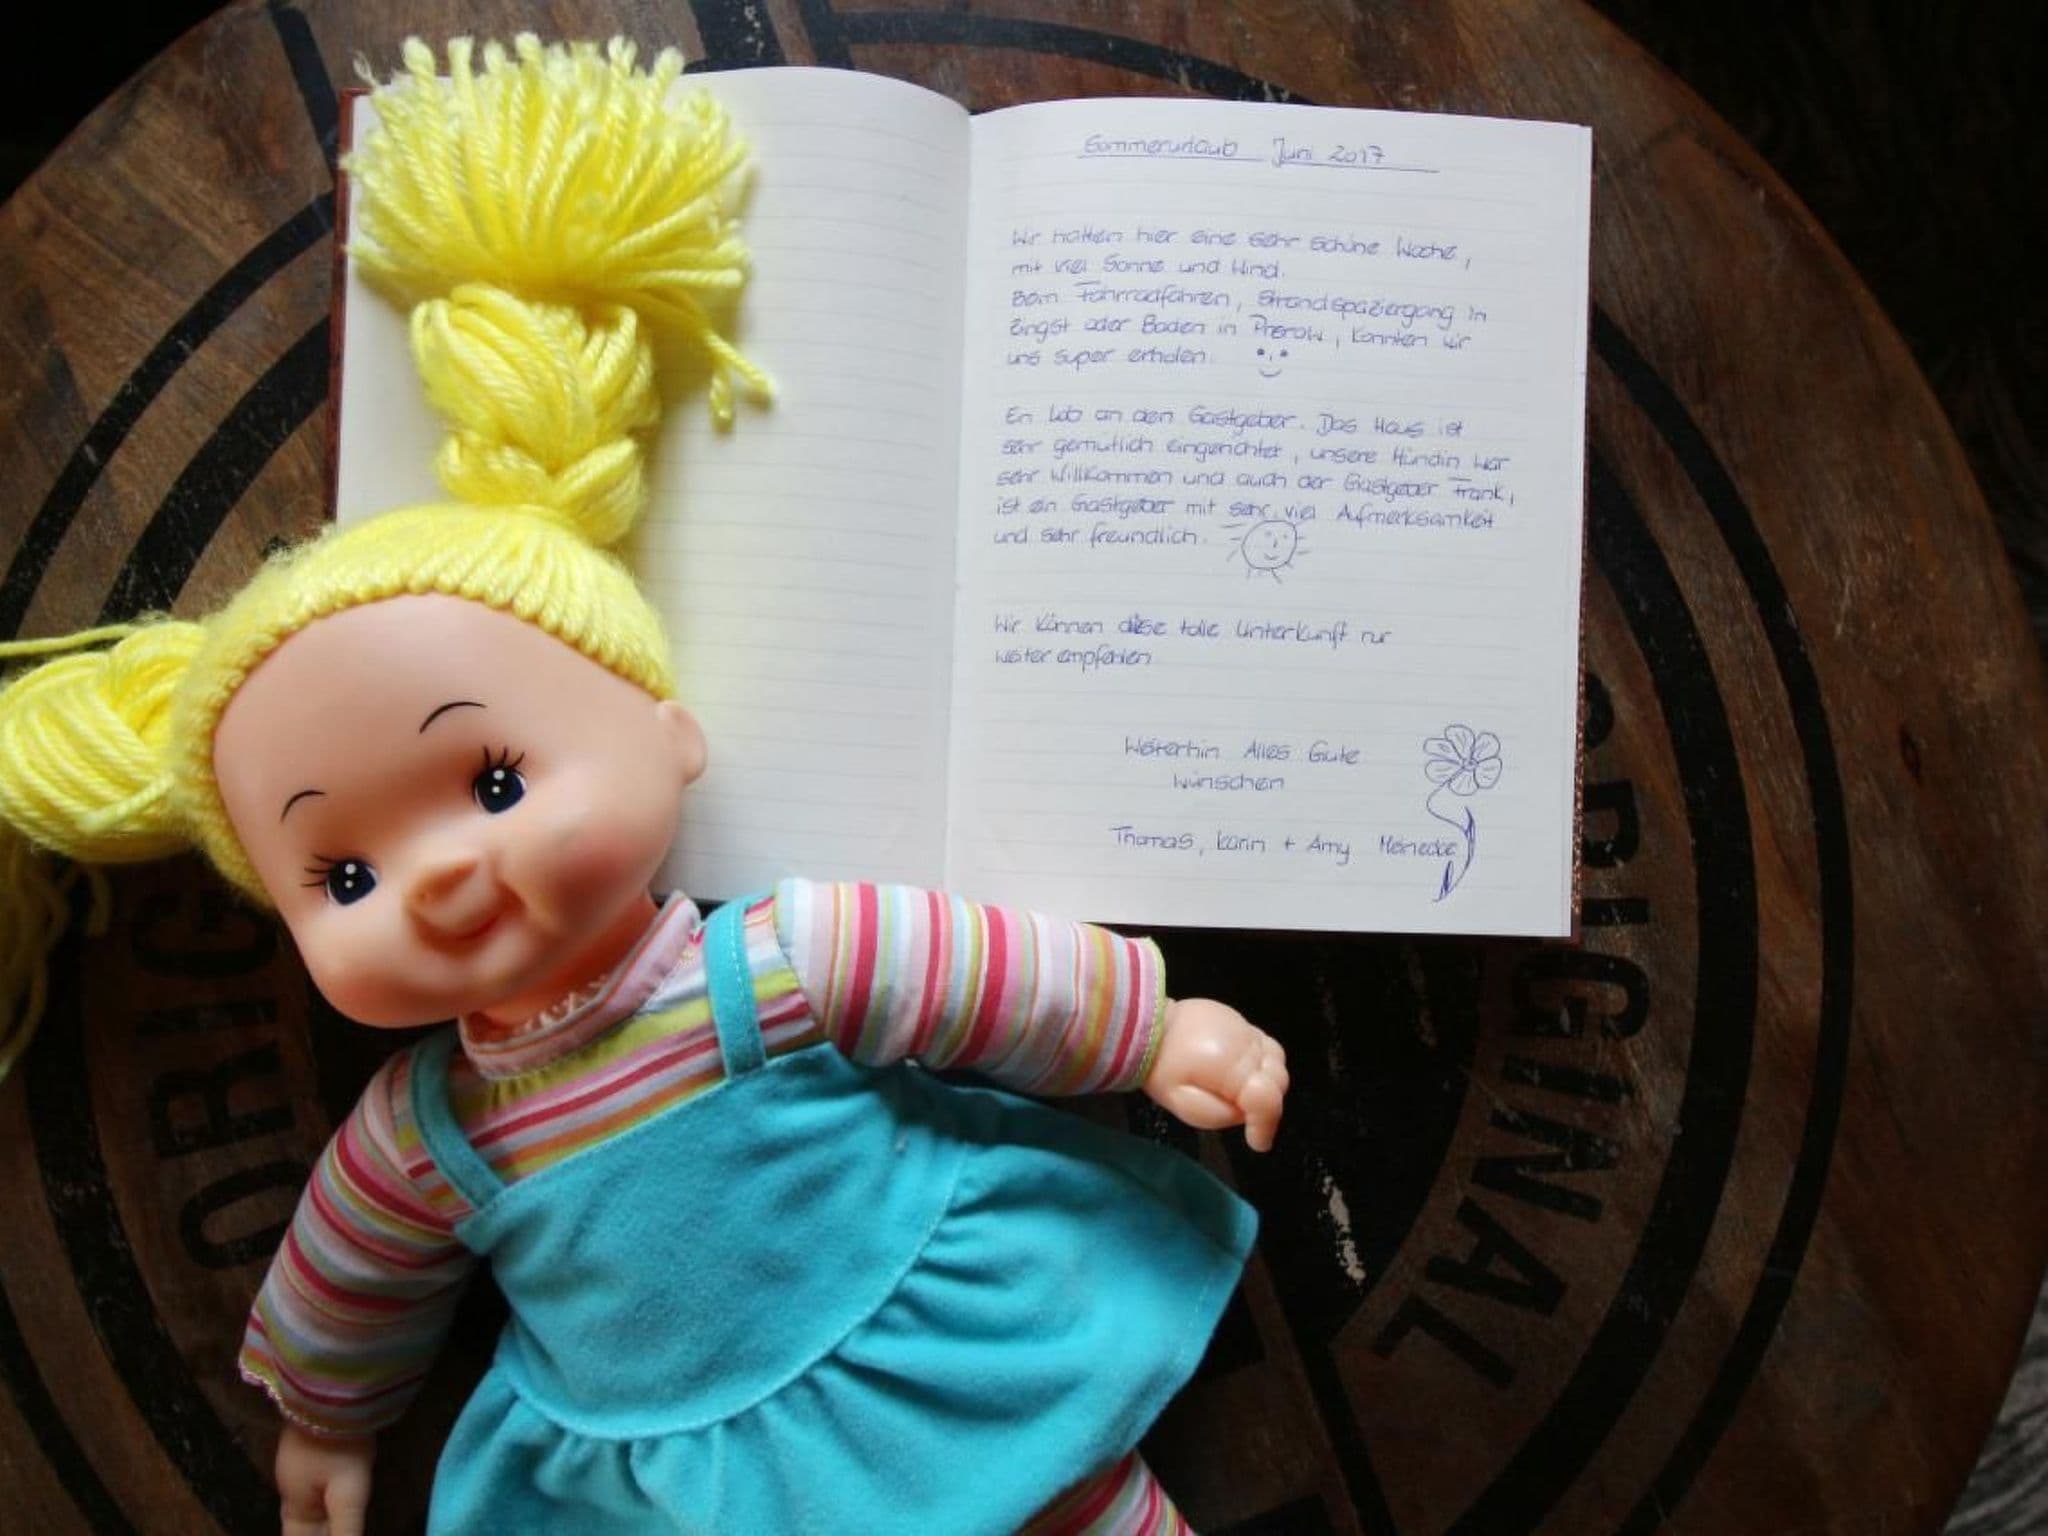 Sommerurlaub Juni 2017
Wir hatten hier eine sehr schöne Woche,
mit viel Sonne und Wind.
Beim Fahrradfahren, Strandspaziergang in
Zingst oder Baden in Prerow, konnten wir
uns super erholen.
Ein Lob an den Gastgeber. Das Haus ist
sehr gemütlich eingerichtet, unsere Hündin war
sehr Willkommen und auch der Gastgeber Frank,
ist ein Gastgeber mit sehr viel Aufmerksamkeit
und sehr freundlich.
Wir können diese tolle Unterkunft nur
weiter empfehlen
Weiterhin Alles Gute
wünschen
Thomas, Karin + Amy Meinecke
ORIGINAL
ORIG